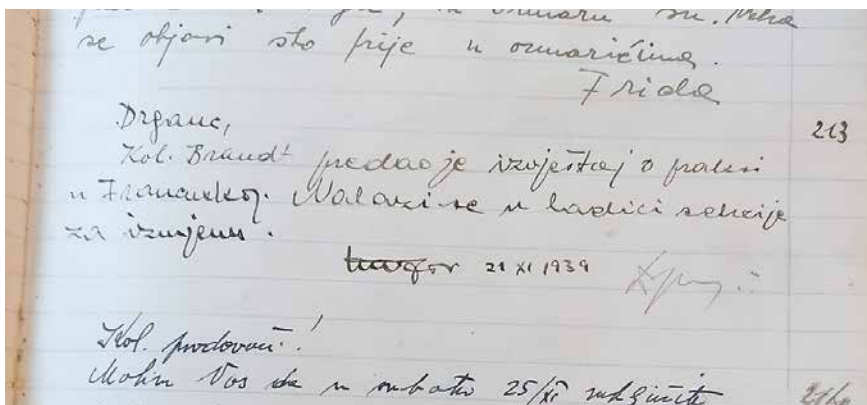 se objavi sto prije u ormarićima.
Frida
213
Drganc,
Kol. Brandt predao je izvještaj o praksi
u Francuskoj. Nalazi se u ladici sekcije
za izmjenu.
21 XI 1939
Kol.
Molim Vas da u subotu 25/XI